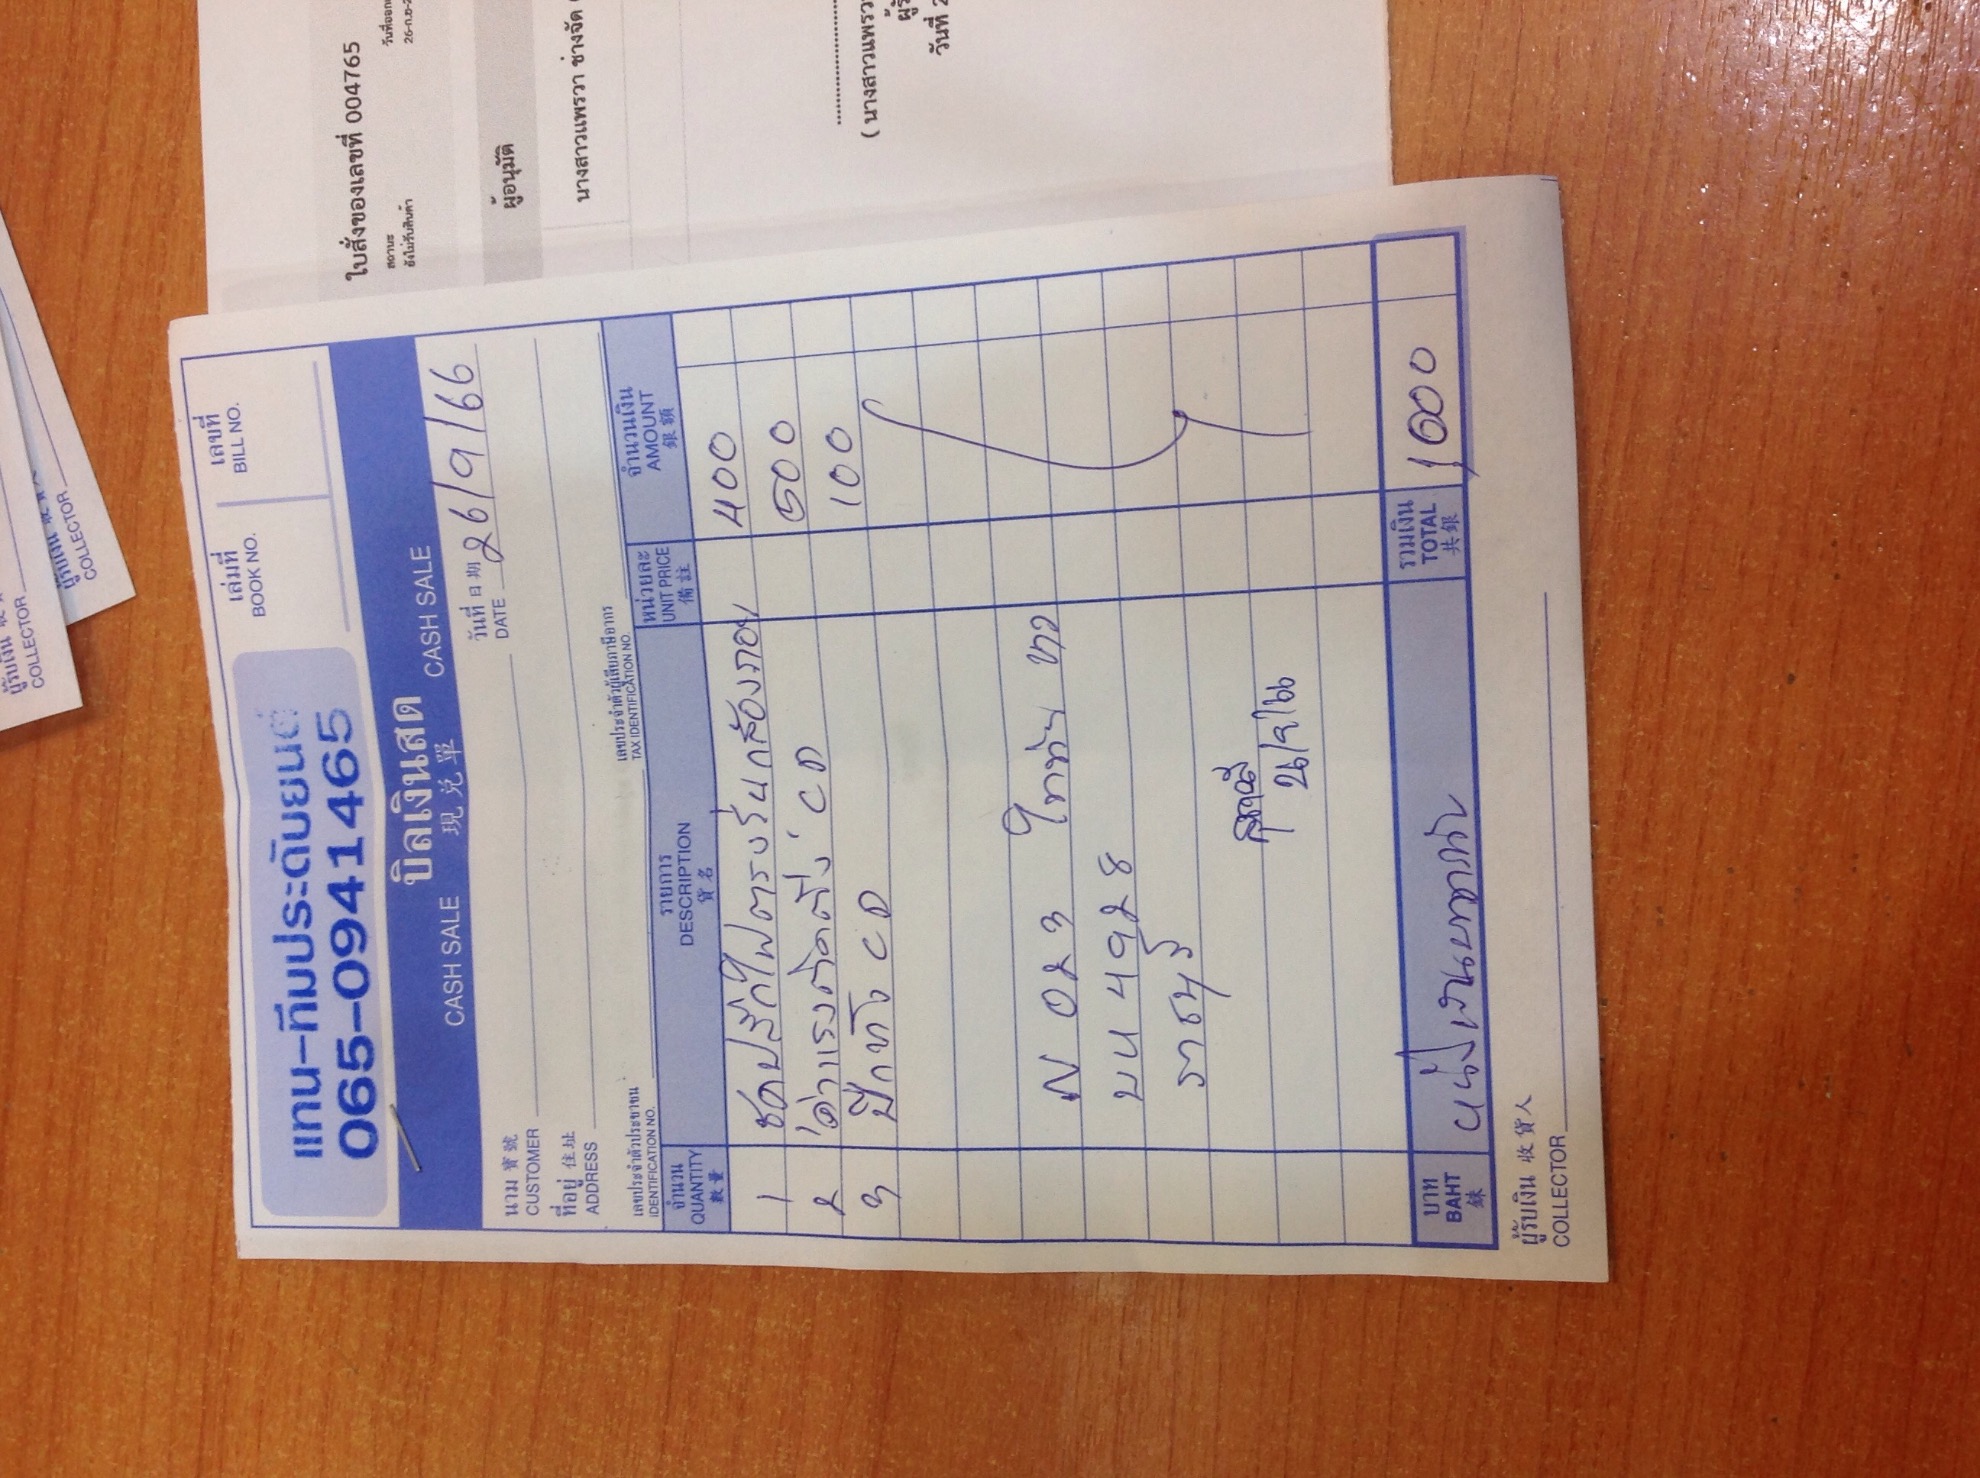 ใบสั่งของเลขที่ 004765
สถานะ
ยังไม่รับสินค้า
ผู้อนุมัติ
นางสาวแพรวา ช่างจัด
( นางสาวแพรวา
วันที่ 2
ผู้รับเงิน
COLLECTOR
COLLECTOR
แทน-ทีมประดับยนต์
065-0941465
เล่มที่
BOOK NO.
เลขที่
BILL NO.
CASH SALE บิลเงินสด CASH SALE
現兌單
วันที่ 日期
DATE 26/9/66
นาม 寶號
CUSTOMER
ที่อยู่ 住址
ADDRESS
เลขประจำตัวประชาชน
IDENTIFICATION NO.
เลขประจำตัวผู้เสียภาษีอากร
TAX IDENTIFICATION NO.
จำนวน QUANTITY 數量
รายการ DESCRIPTION 貨名
หน่วยละ UNIT PRICE 備註
จำนวนเงิน AMOUNT 銀額
1 400
2 ค่าแรงติดตั้ง CD 500
3 ปิ๊กทัง CD 100
N 023
บน 4928
ราชบุรี
26/9/66
บาท BAHT 銖
หนึ่งพันบาทถ้วน
รวมเงิน TOTAL 共銀
1,000
ผู้รับเงิน 收貨人
COLLECTOR